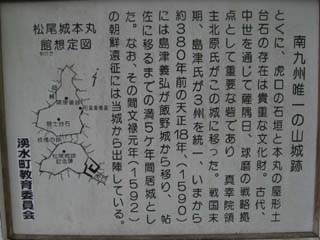 南九州唯一の山城跡
とくに、虎口の石垣と本丸の屋形土
台石の存在は貴重な文化財。古代、
中世を通じて薩隅日、球磨の戦略拠
点として重要な砦であり 真幸院領
主北原氏がこの城に移った。戦国末
期、島津氏が3州を統一、いまから
約380年前の天正18年、(1590)
には島津義弘が飯野城から移り、帖
佐に移るまでの満5ケ年間居城とし
た。なお、その間文禄元年(1592)
の朝鮮遠征には当城から出陣している。
松尾城本丸
館想定図
湧水町教育委員会